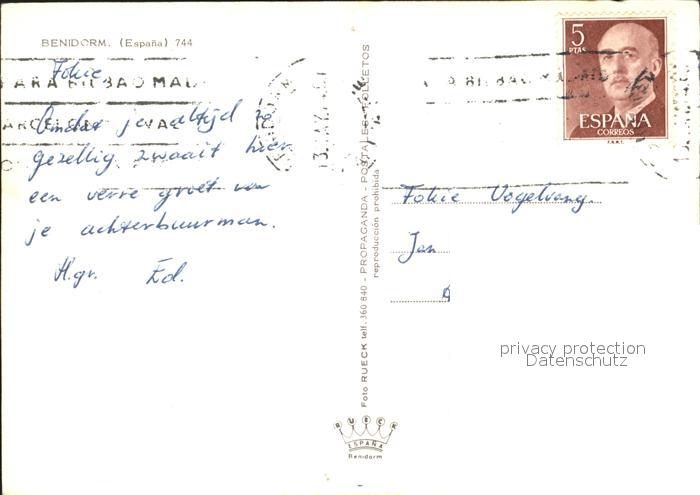 BENIDORM. (España) 744
Fokie
Omdat je altijd zo
gezellig zwaait hier
een verre groet van
je achterbuurman.
H.gr. Ed.
Foto RUECK telf. 360 840 - PROPAGANDA - POSTALES - FOLLETOS
reproducción prohibida
RUECK
ESPAÑA
Benidorm
5
PTAS
ESPAÑA
CORREOS
F.N.M.T.
Fokie Vogelvang.
Jan
privacy protection
Datenschutz